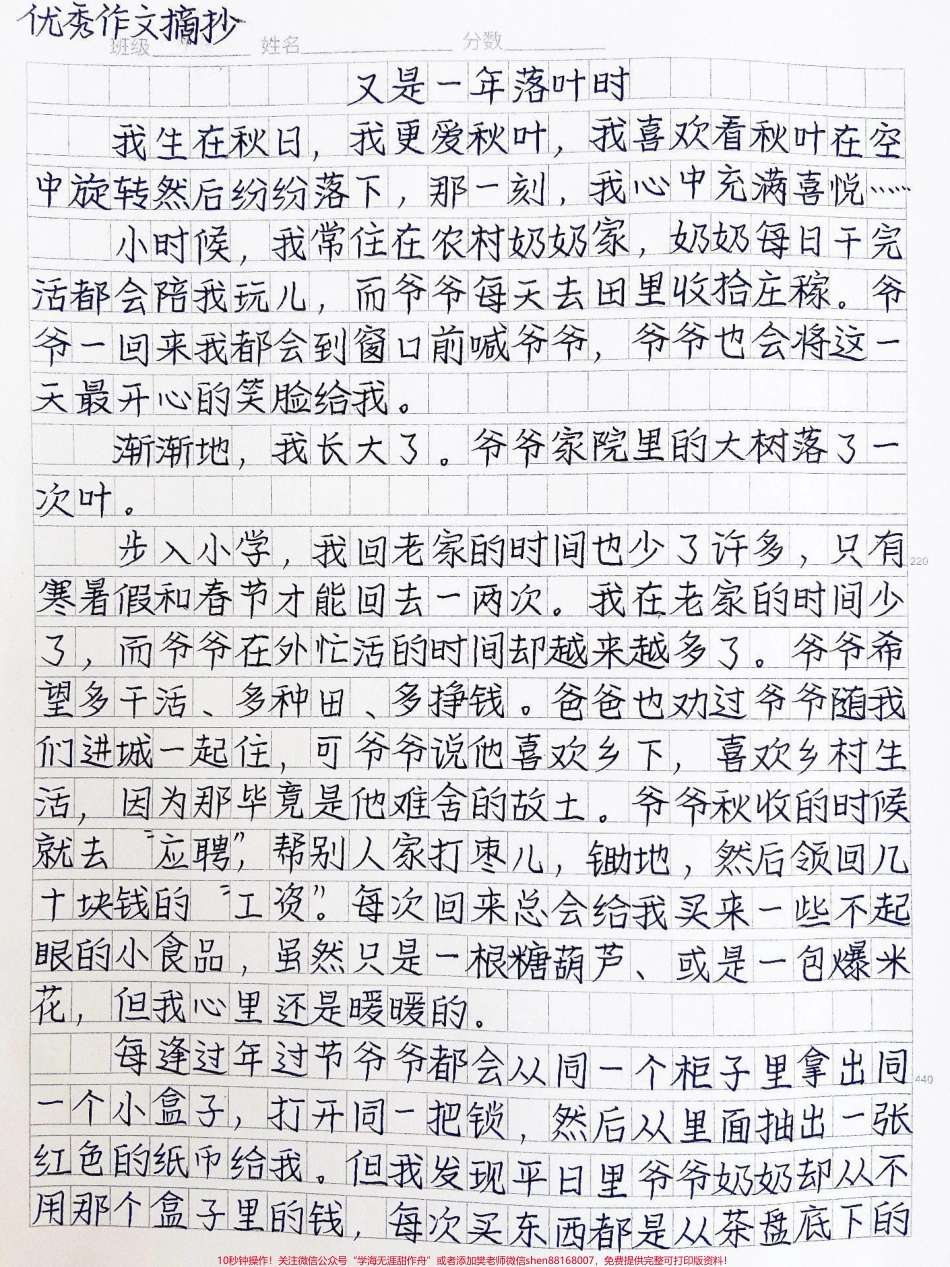 优秀作文摘抄
班级 姓名 分数
又是一年落叶时
我生在秋日，我更爱秋叶，我喜欢看秋叶在空
中旋转然后纷纷落下，那一刻，我心中充满喜悦……
小时候，我常住在农村奶奶家，奶奶每日干完
活都会陪我玩儿，而爷爷每天去田里收拾庄稼。爷
爷一回来我都会到窗口前喊爷爷，爷爷也会将这一
天最开心的笑脸给我。
渐渐地，我长大了。爷爷家院里的大树落了一
次叶。
步入小学，我回老家的时间也少了许多，只有
220
寒暑假和春节才能回去一两次。我在老家的时间少
了，而爷爷在外忙活的时间却越来越多了。爷爷希
望多干活、多种田、多挣钱。爸爸也劝过爷爷随我
们进城一起住，可爷爷说他喜欢乡下，喜欢乡村生
活，因为那毕竟是他难舍的故土。爷爷秋收的时候
就去“应聘”，帮别人家打枣儿，锄地，然后领回几
十块钱的“工资”。每次回来总会给我买来一些不起
眼的小食品，虽然只是一根糖葫芦、或是一包爆米
花，但我心里还是暖暖的。
每逢过年过节爷爷都会从同一个柜子里拿出同
440
一个小盒子，打开同一把锁，然后从里面抽出一张
红色的纸币给我。但我发现平日里爷爷奶奶却从不
用那个盒子里的钱，每次买东西都是从茶盘底下的
10秒钟操作！关注微信公众号“学海无涯甜作舟”或者添加樊老师微信shen88168007，免费提供完整可打印版资料！